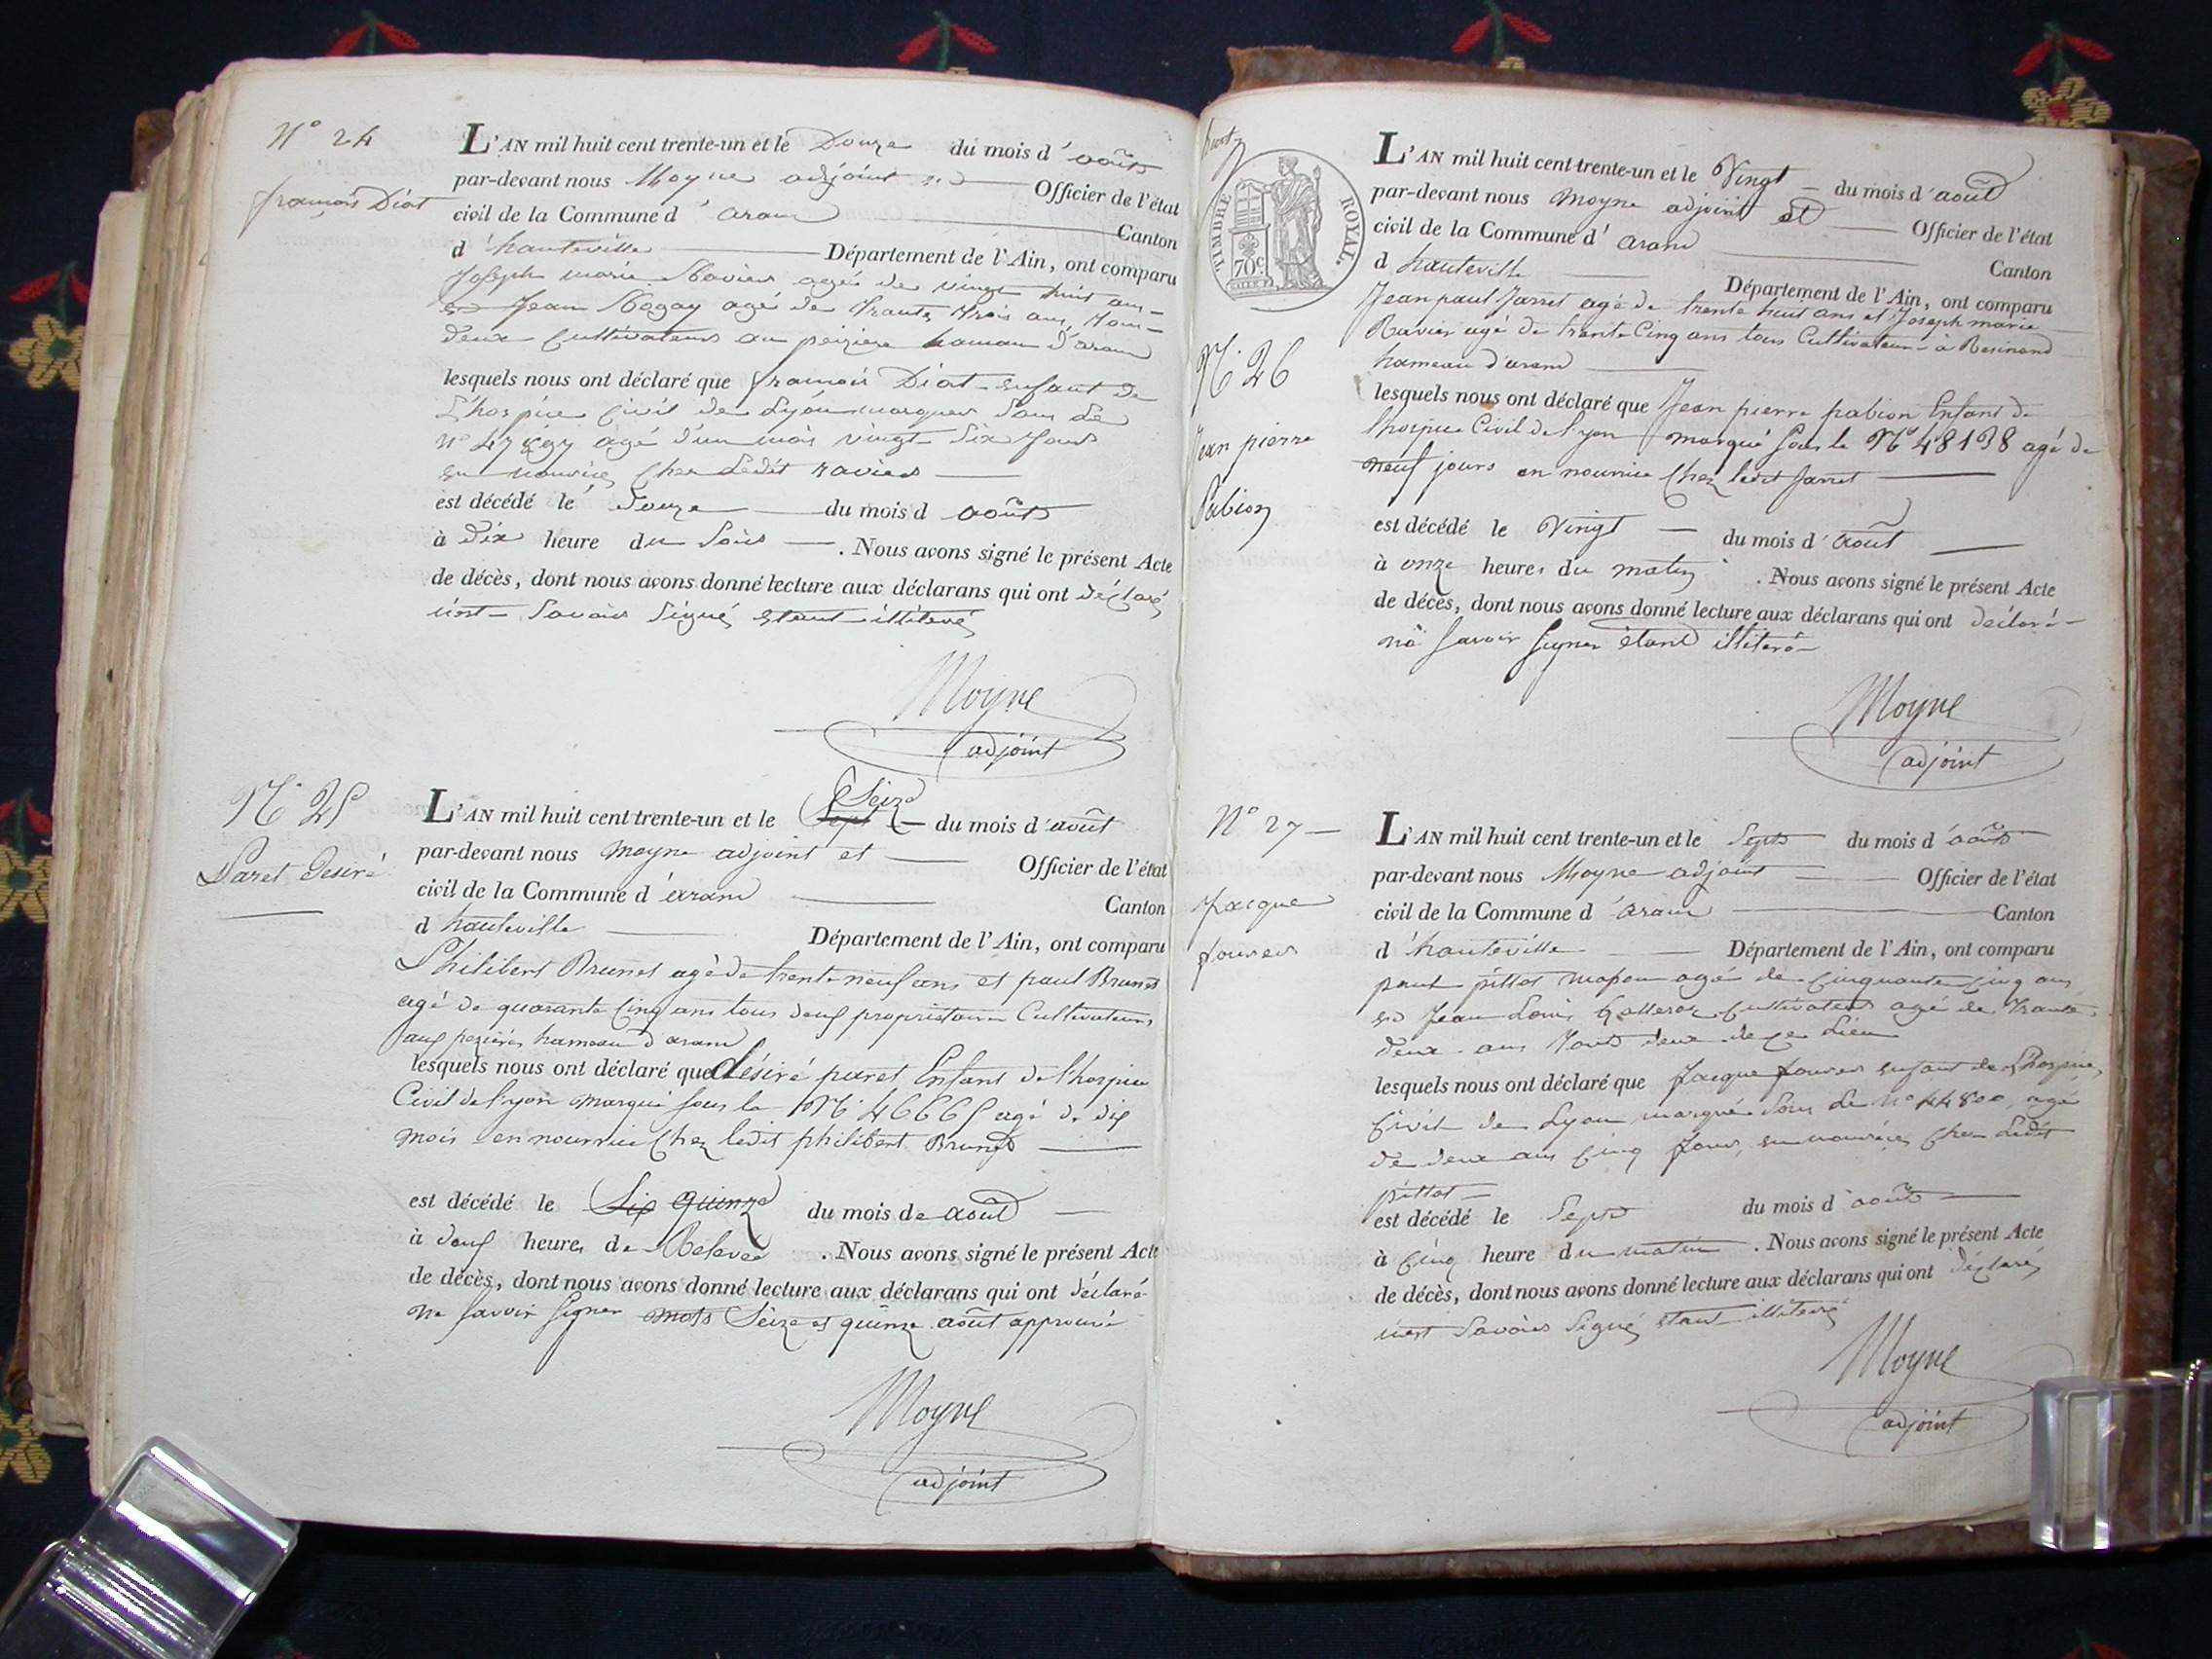 N° 24
françois Diat
L'AN mil huit cent trente-un et le Douze du mois d'août
par-devant nous Moyne adjoint Officier de l'état
civil de la Commune d'aran Canton
d'hauteville Département de l'Ain, ont comparu
Joseph marie Ravier agés de vingt huit ans
Jean agé de trante trois ans tous
deux Cultivateurs au hamau d'aran
lesquels nous ont déclaré que françois Diat enfant de
L'hospice Civil de Lyon marquer sous le
n° agé d'un mois vingt six jours
en nourice Chez Ledit ravier
est décédé le Douze du mois d août
à dix heure du Soir. Nous avons signé le présent Acte
de décès, dont nous avons donné lecture aux déclarans qui ont déclaré
Savoir Signé étant illiteré
Moyne
adjoint
N° 25
Paret Desiré
L'AN mil huit cent trente-un et le Sept Seize du mois d'août
par-devant nous moyne adjoint et Officier de l'état
civil de la Commune d'aran Canton
d hauteville Département de l'Ain, ont comparu
Philibert Brunet agé de trente neuf ans et paul Brunet
agé de quarante Cinq ans tous deux propriétaires Cultivateurs
aux hameau d'aran
lesquels nous ont déclaré que désiré paret Enfant de l'hospice
Civil de lyon marqué sous le N° 46665 agé de dix
mois en nourrice Chez ledit philibert Brunet
est décédé le Six quinze du mois de août
à deux heures de Relevée. Nous avons signé le présent Acte
de décès, dont nous avons donné lecture aux déclarans qui ont déclaré
ne savoir signer mots Seize et quinze août approuvé
Moyne
adjoint
TIMBRE ROYAL.
70c
N° 26
Jean pierre
Pabion
L'AN mil huit cent trente-un et le Vingt du mois d'août
par-devant nous moyne adjoint et Officier de l'état
civil de la Commune d'aran Canton
d hauteville Département de l'Ain, ont comparu
Jean paul Jarret agé de trente huit ans et Joseph marie
Ravier agé de trente Cinq ans tous Cultivateurs à Resinand
hameau d'aran
lesquels nous ont déclaré que Jean pierre pabion Enfant de
l'hospice Civil de lyon marqué sous le N° 48138 agé de
neuf jours en nourrice Chez ledit Jarret
est décédé le Vingt du mois d'août
à onze heures du matin. Nous avons signé le présent Acte
de décès, dont nous avons donné lecture aux déclarans qui ont déclaré
savoir signer étant illiteré
Moyne
adjoint
N° 27
Jacque
fourer
L'AN mil huit cent trente-un et le Sept du mois d'août
par-devant nous Moyne adjoint Officier de l'état
civil de la Commune d'aran Canton
d'hauteville Département de l'Ain, ont comparu
paul pittot agé de Cinquante Cinq ans
Jean Louis Cultivateur agé de trante
deux ans tous deux de ce Lieu
lesquels nous ont déclaré que Jacque fourer enfant de L'hospice
Civil de Lyon marqué sous Le N° 44800, agé
de deux ans Cinq jours, en nourice Chez Ledit
pittot
est décédé le Sept du mois d'août
à Cinq heure du matin. Nous avons signé le présent Acte
de décès, dont nous avons donné lecture aux déclarans qui ont déclaré
Savoir Signé étant illiteré
Moyne
adjoint